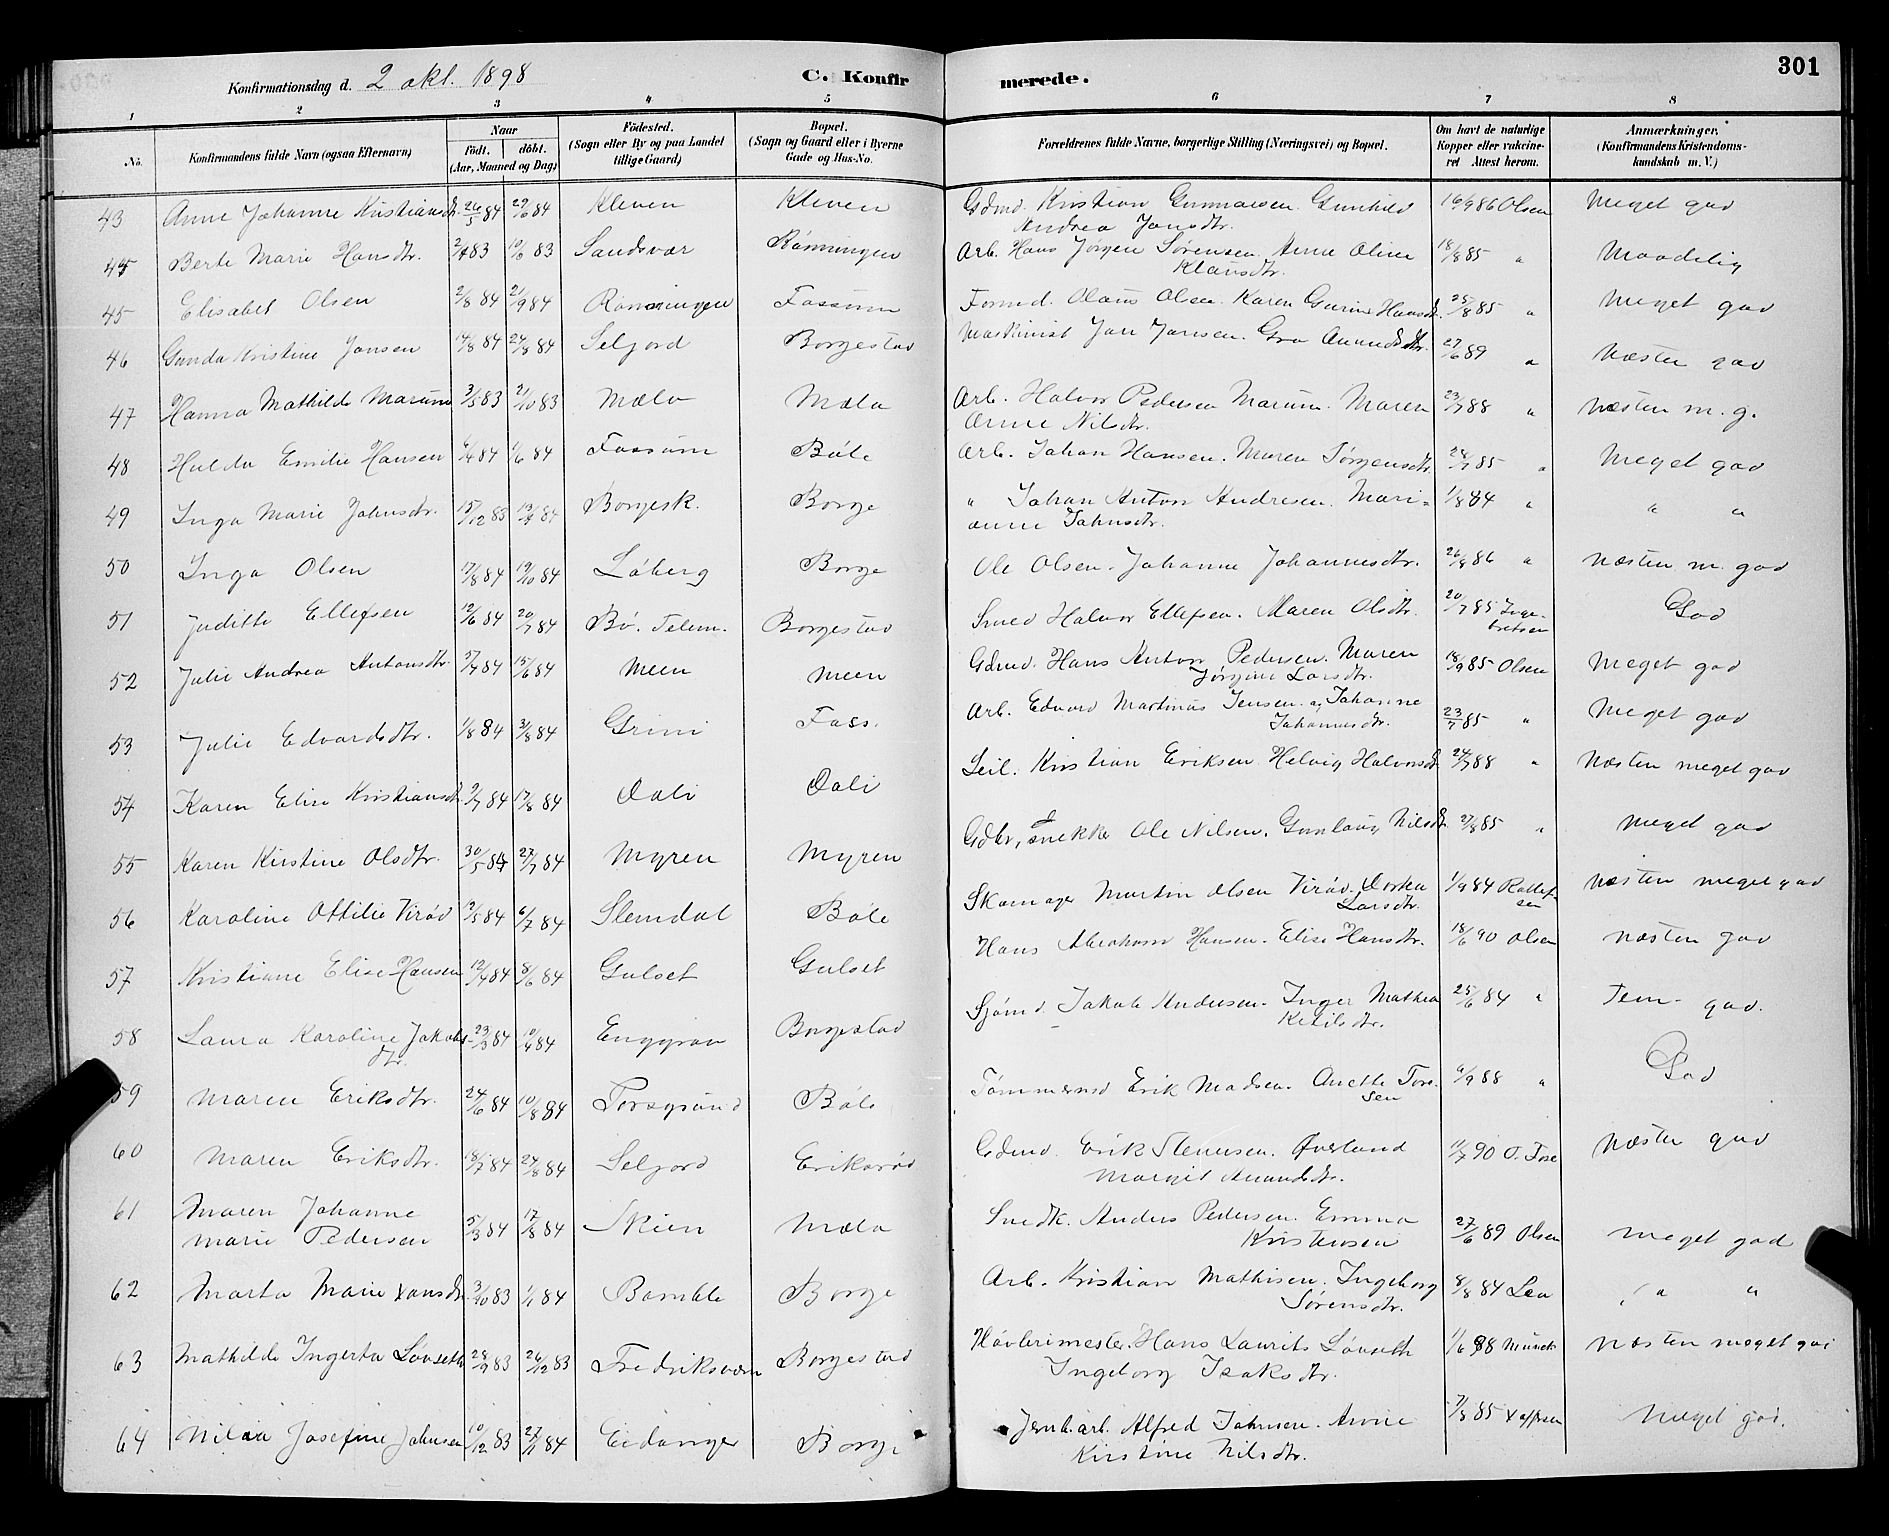 301
Konfirmationsdag d. 2 okt. 1898
C. Konfirmerede.
1 2 3 4 5 6 7 8
No. Konfirmandens fulde Navn (ogsaa Efternavn) Naar født. døbt. (Aar, Maaned og Dag) Fødested. (Sogn eller By og paa Landet tillige Gaard) Bopæl. (Sogn og Gaard eller i Byerne Gade og Hus-No. Forældrenes fulde Navne, borgerlige Stilling (Næringsvei) og Bopæl. Om havt de naturlige Kopper eller vaccineret Attest herom. Anmærkninger. (Konfirmandens Kristendomskundskab m. V.)
43 Anne Johanne Kristiansdtr. 26/5 84 29/6 84 Kleven Kleven Gdmd. Kristian Gunnarsen. Gunhild Andrea Jansdtr. 16/9 86 Olsen Meget god
45 Berte Marie Hansdtr. 83 83 Sandsvær Rønningen Arb. Hans Jørgen Sørensen. Anne Oline Klausdtr. 18/8 85 " Maadelig
45 Elisabet Olsen 2/8 84 21/9 84 Rønningen Fossum Formd. Olaus Olsen. Karen Gurine Hansdtr. 25/8 85 " Meget god
46 Gunda Kristine Jansen 14/8 84 24/8 84 Seljord Borgestad Maskinist Jan Jansen. Gro Aanundsdtr. 27/6 89 " Næsten god
47 Hanna Mathilde Marum 3/5 83 21/10 83 Mæla Mæla Arb. Halvor Pedersen Marum. Maren Anne Nilsdtr. 23/7 88 " næsten m. g.
48 Hulda Emilie Hansen 6/4 84 1/6 84 Fossum Bøle Arb. Johan Hansen. Maren Jørgensdtr. 24/7 85 " Meget god
49 Inga Marie Johnsdtr. 15/12 83 13/4 84 Borgesk. Borge " Johan Anton Andresen. Marianne Johnsdtr. 1/8 84 " " "
50 Inga Olsen 17/8 84 19/10 84 Løberg Borge Ole Olsen. Johanne Johannesdtr. 26/8 86 " næsten m. god
51 Juditte Ellefsen 12/6 84 20/7 84 Bø. Telem. Borgestad Smed Halvor Ellefsen. Maren Olsdtr. 20/7 85 Ingebretsen God
52 Julie Andrea Antonsdtr. 84 15/6 84 Meen Meen Gdmd. Hans Anton Pedersen. Maren Jørgine Larsdtr. 18/9 85 Olsen Meget god
53 Julie Edvardsdtr. 1/8 84 3/8 84 Grini Foss. Arb. Edvard Martinus Jensen. Johanne Johannesdtr. 23/7 85 " Meget god
54 Karen Elise Kristiansdtr 9/7 84 17/8 84 Dali Dali Leil. Kristian Eriksen. Helvig Halvorsdtr 24/7 88 " Næsten meget god
55 Karen Kirstine Olsdtr. 30/5 84 27/7 84 Myren Myren Gdbr, snekker Ole Nilsen. Gunlaug Nilsdtr. 2/8 85 " Meget god
56 Karoline Ottilie Virød 9/5 84 6/7 84 Slemdal Bøle Skomager Martin Olsen Virød. Dorthea Larsdtr. 1/9 84 Rollefsen Næsten meget god
57 Kristiane Elise Hansen 12/4 84 8/6 84 Gulset Gulset Hans Abraham Hansen. Elise Hansdtr. 18/6 90 Olsen næsten god
58 Laura Karoline Jakobsdtr. 23/3 84 84 Enggrav Borgestad Sjømd. Jakob Andersen. Inger Mathea Ketilsdtr. 25/6 84 " Tem. god.
59 Maren Eriksdtr. 24/6 84 10/8 84 Porsgrund Bøle Tømmermd Erik Madsen. Anette Toresen 6/9 88 " God
60 Maren Eriksdtr. 18/7 84 24/8 84 Seljord Eriksrød Gdmd. Erik Stenersen. Øverland Margit Amundsdtr. 11/7 90 O. Tose næsten god
61 Maren Johanne Marie Pedersen 5/3 84 17/8 84 Skien Mæla Snedk. Anders Pedersen. Emma Kristensen 27/6 89 Olsen Meget god
62 Marta Marie Xansdtr. 3/10 83 1/1 84 Bamble Borge Arb. Kristian Mathisen. Ingeborg Sørensdtr. 8/8 84 Lea " "
63 Mathilde Ingerta Lønseth 28/9 83 26/12 83 Fredriksværn Borgestad Høvlerimester Hans Laurits Lønseth Ingeborg Isaksdtr. 1/6 98 Munch Næsten meget god
64 Nilsia Josefine Johnsen 10/12 83 27/1 84 Eidanger Borge Jernb.arb. Alfred Johnsen. Anne Kirstine Nilsdtr. 7/8 85 Meget god.